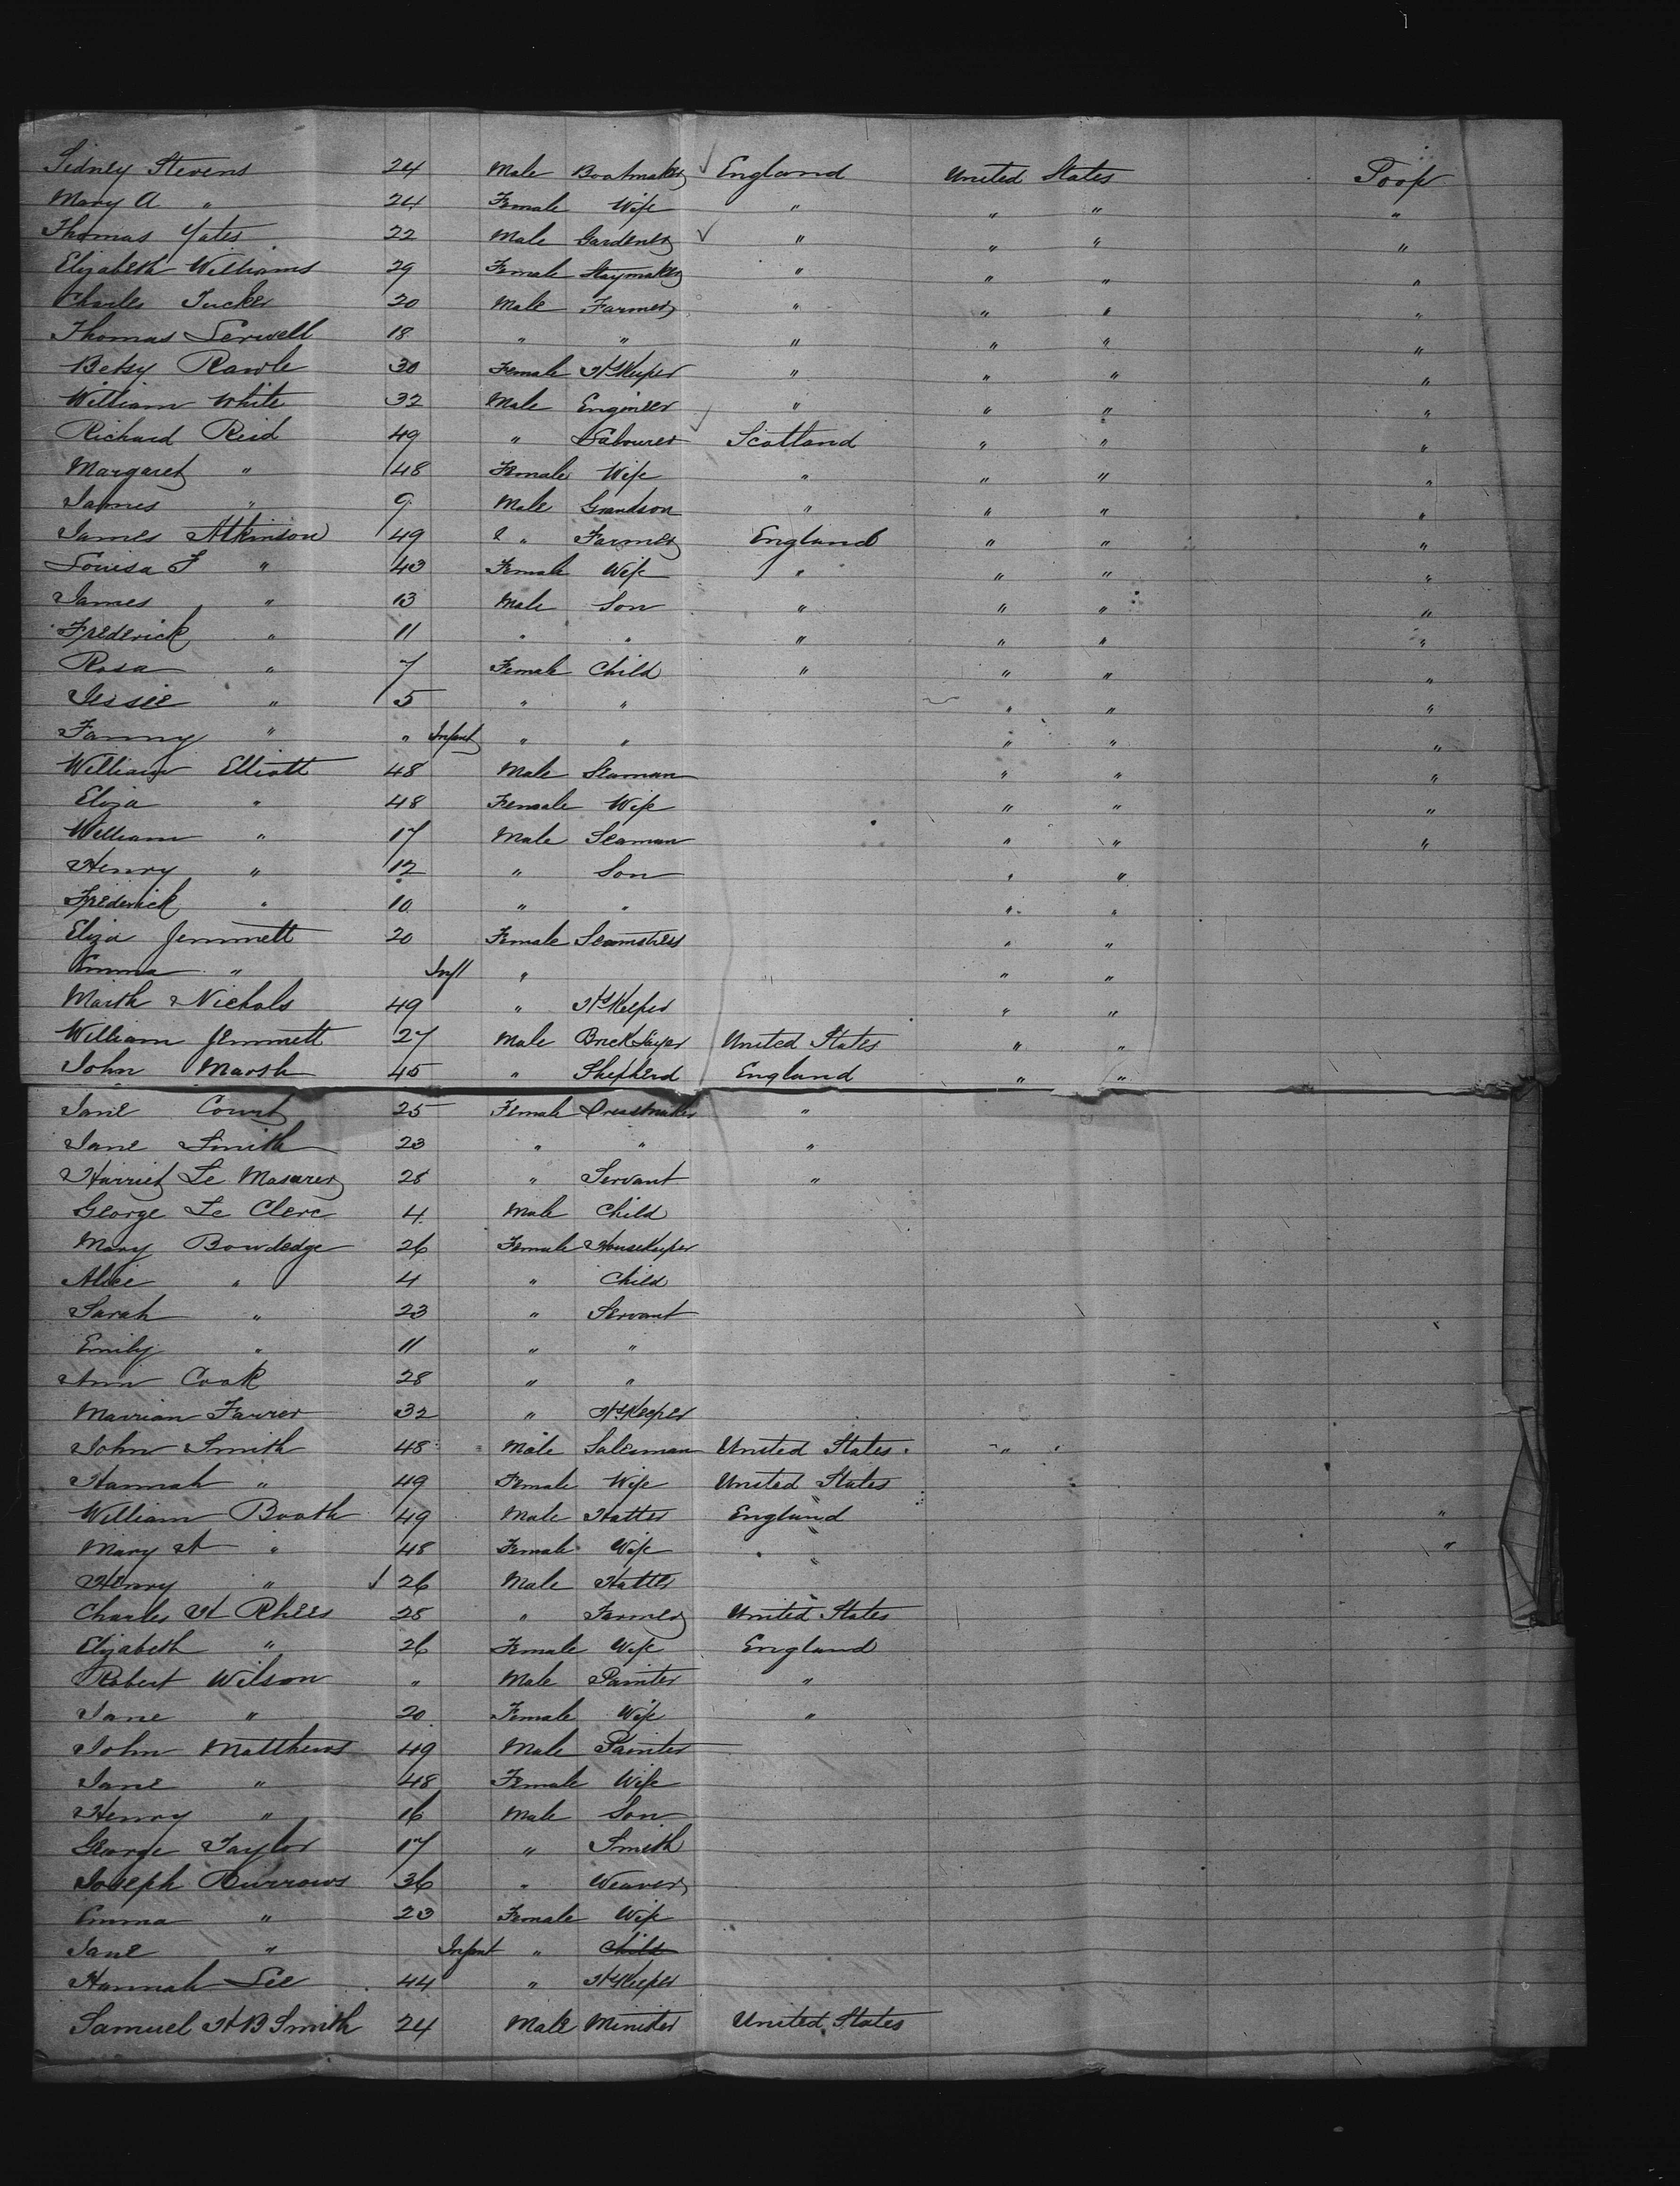 Sidney Stevens 24 Male Bootmaker England United States Poop
Mary A " 24 Female Wife " " " "
Thomas Yates 22 Male Gardener " " " "
Elizabeth Williams 29 Female Staymaker " " " "
Charles Tucker 20 Male Farmer " " " "
Thomas Serwell 18 " " " " " "
Betsy Rawle 30 Female HsKeeper " " " "
William White 32 Male Engineer " " " "
Richard Reid 49 " Labourer Scotland " " "
Margaret " 48 Female Wife " " " "
James " 9 Male Grandson " " " "
James Atkinson 49 " Farmer England " " "
Louisa J " 43 Female Wife " " " "
James " 13 Male Son " " " "
Frederick " 11 " " " " " "
Rosa " 7 Female Child " " " "
Jessie " 5 " " " " "
Fanny " " Infant " " " " "
William Elliott 48 Male Seaman " " "
Eliza " 48 Female Wife " " "
William " 17 Male Seaman " " "
Henry " 12 " Son " "
Frederick " 10 " " " "
Eliza Jemmett 20 Female Seamstress " "
Emma " Inft " " "
Nichols 49 " HsKeeper " "
William Jemmett 27 Male BrickLayer United States " "
John Marsh 45 " Shepherd England " "
Jane Court 25 Female Dressmaker "
Jane Smith 23 " " "
Harriet Le Masurer 25 " Servant "
George Le Clerc 4 Male Child
Mary Bowdedge 26 Female HouseKeeper
Alice " 4 " Child
Sarah " 23 " Servant
Emily " 11 " "
Ann Cook 28 " "
Marrian Farrer 32 " HsKeeper
John Smith 48 Male Salesman United States "
Hannah " 49 Female Wife United States
William Booth 49 Male Hatter England "
Mary A " 48 Female Wife " "
Henry " 26 Male Hatter "
Charles H Rhees 25 " Farmer United States
Elizabeth " 26 Female Wife England
Robert Wilson " Male Painter "
Jane " 20 Female Wife "
John Matthews 49 Male Painter
Jane " 48 Female Wife
Henry " 16 Male Son
George Taylor 17 " Smith
Joseph Burrows 36 " Weaver
Emma " 23 Female Wife
Jane " Infant " Child
Hannah Lee 44 " HsKeeper
Samuel H B Smith 24 Male Minister United States